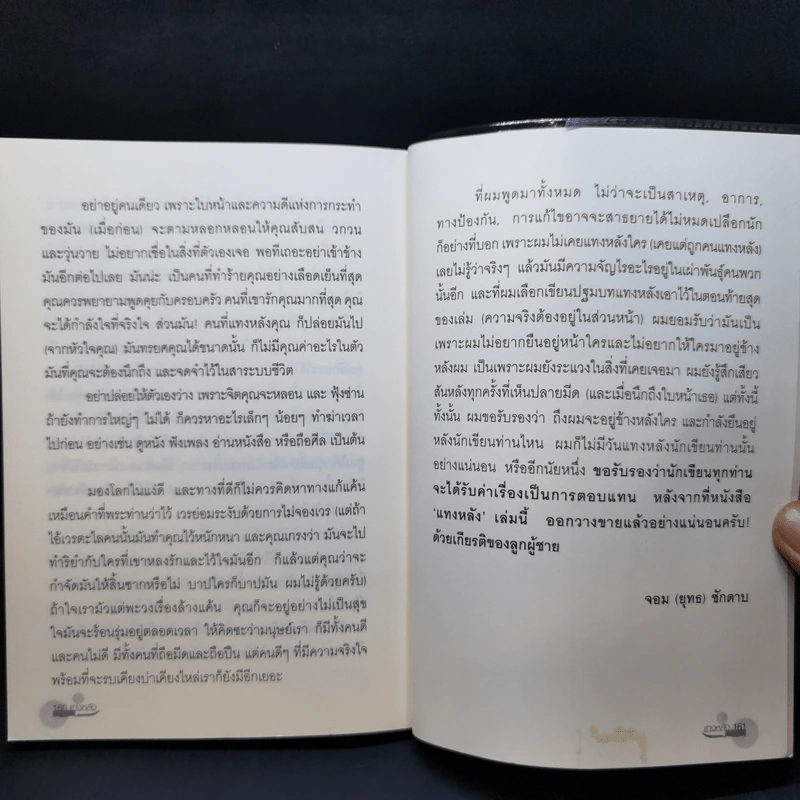 อย่าอยู่คนเดียว เพราะใบหน้าและความดีแห่งการกระทำ
ของมัน (เมื่อก่อน) จะตามหลอกหลอนให้คุณสับสน วกวน
และวุ่นวาย ไม่อยากเชื่อในสิ่งที่ตัวเองเจอ พอทีเถอะอย่าเข้าข้าง
มันอีกต่อไปเลย มันน่ะ เป็นคนที่ทำร้ายคุณอย่างเลือดเย็นที่สุด
คุณควรพยายามพูดคุยกับครอบครัว คนที่เขารักคุณมากที่สุด คุณ
จะได้กำลังใจที่จริงใจ ส่วนมัน! คนที่แทงหลังคุณ ก็ปล่อยมันไป
(จากหัวใจคุณ) มันทรยศคุณได้ขนาดนั้น ก็ไม่มีค่าอะไรในตัว
มันที่คุณจะต้องนึกถึง และจดจำไว้ในสาระบบชีวิต
อย่าปล่อยให้ตัวเองว่าง เพราะจิตคุณจะหลอน และ ฟุ้งซ่าน
ถ้ายังทำการใหญ่ๆ ไม่ได้ ก็ควรหาอะไรเล็กๆ น้อยๆ ทำฆ่าเวลา
ไปก่อน อย่างเช่น ดูหนัง ฟังเพลง อ่านหนังสือ หรือถือศีล เป็นต้น
มองโลกในแง่ดี และทางที่ดีก็ไม่ควรคิดหาทางแก้แค้น
เหมือนคำที่พระท่านว่าไว้ เวรย่อมระงับด้วยการไม่จองเวร (แต่ถ้า
ไอ้เวรตะไลคนนั้นมันทำคุณไว้หนักหนา และคุณเกรงว่า มันจะไป
ทำริยำกับใครที่เขาหลงรักและไว้ใจมันอีก ก็แล้วแต่คุณว่าจะ
กำจัดมันให้สิ้นซากหรือไม่ บาปใครก็บาปมัน ผมไม่รู้ด้วยครับ)
ถ้าใจเรามัวแต่พะวงเรื่องล้างแค้น คุณก็จะอยู่อย่างไม่เป็นสุข
ใจมันจะร้อนรุ่มอยู่ตลอดเวลา ให้คิดซะว่ามนุษย์เรา ก็มีทั้งคนดี
และคนไม่ดี มีทั้งคนที่ถือมีดและถือปืน แต่คนดีๆ ที่มีความจริงใจ
พร้อมที่จะรบเคียงบ่าเคียงไหล่เราก็ยังมีอีกเยอะ
160 แทงหลัง
ที่ผมพูดมาทั้งหมด ไม่ว่าจะเป็นสาเหตุ, อาการ,
ทางป้องกัน, การแก้ไขอาจจะสาธยายได้ไม่หมดเปลือกนัก
ก็อย่างที่บอก เพราะผมไม่เคยแทงหลังใคร (เคยแต่ถูกคนแทงหลัง)
เลยไม่รู้ว่าจริงๆ แล้วมันมีความจัญไรอะไรอยู่ในเผ่าพันธุ์คนพวก
นั้นอีก และที่ผมเลือกเขียนปฐมบทแทงหลังเอาไว้ในตอนท้ายสุด
ของเล่ม (ความจริงต้องอยู่ในส่วนหน้า) ผมยอมรับว่ามันเป็น
เพราะผมไม่อยากยืนอยู่หน้าใครและไม่อยากให้ใครมาอยู่ข้าง
หลังผม เป็นเพราะผมยังระแวงในสิ่งที่เคยเจอมา ผมยังรู้สึกเสียว
สันหลังทุกครั้งที่เห็นปลายมีด (และเมื่อนึกถึงใบหน้าเธอ) แต่ทั้งนี้
ทั้งนั้น ผมขอรับรองว่า ถึงผมจะอยู่ข้างหลังใคร และกำลังยืนอยู่
หลังนักเขียนท่านไหน ผมก็ไม่มีวันแทงหลังนักเขียนท่านนั้น
อย่างแน่นอน หรืออีกนัยหนึ่ง ขอรับรองว่านักเขียนทุกท่าน
จะได้รับค่าเรื่องเป็นการตอบแทน หลังจากที่หนังสือ
'แทงหลัง' เล่มนี้ ออกวางขายแล้วอย่างแน่นอนครับ!
ด้วยเกียรติของลูกผู้ชาย
จอม (ยุทธ) ชักดาบ
แทงหลัง 161